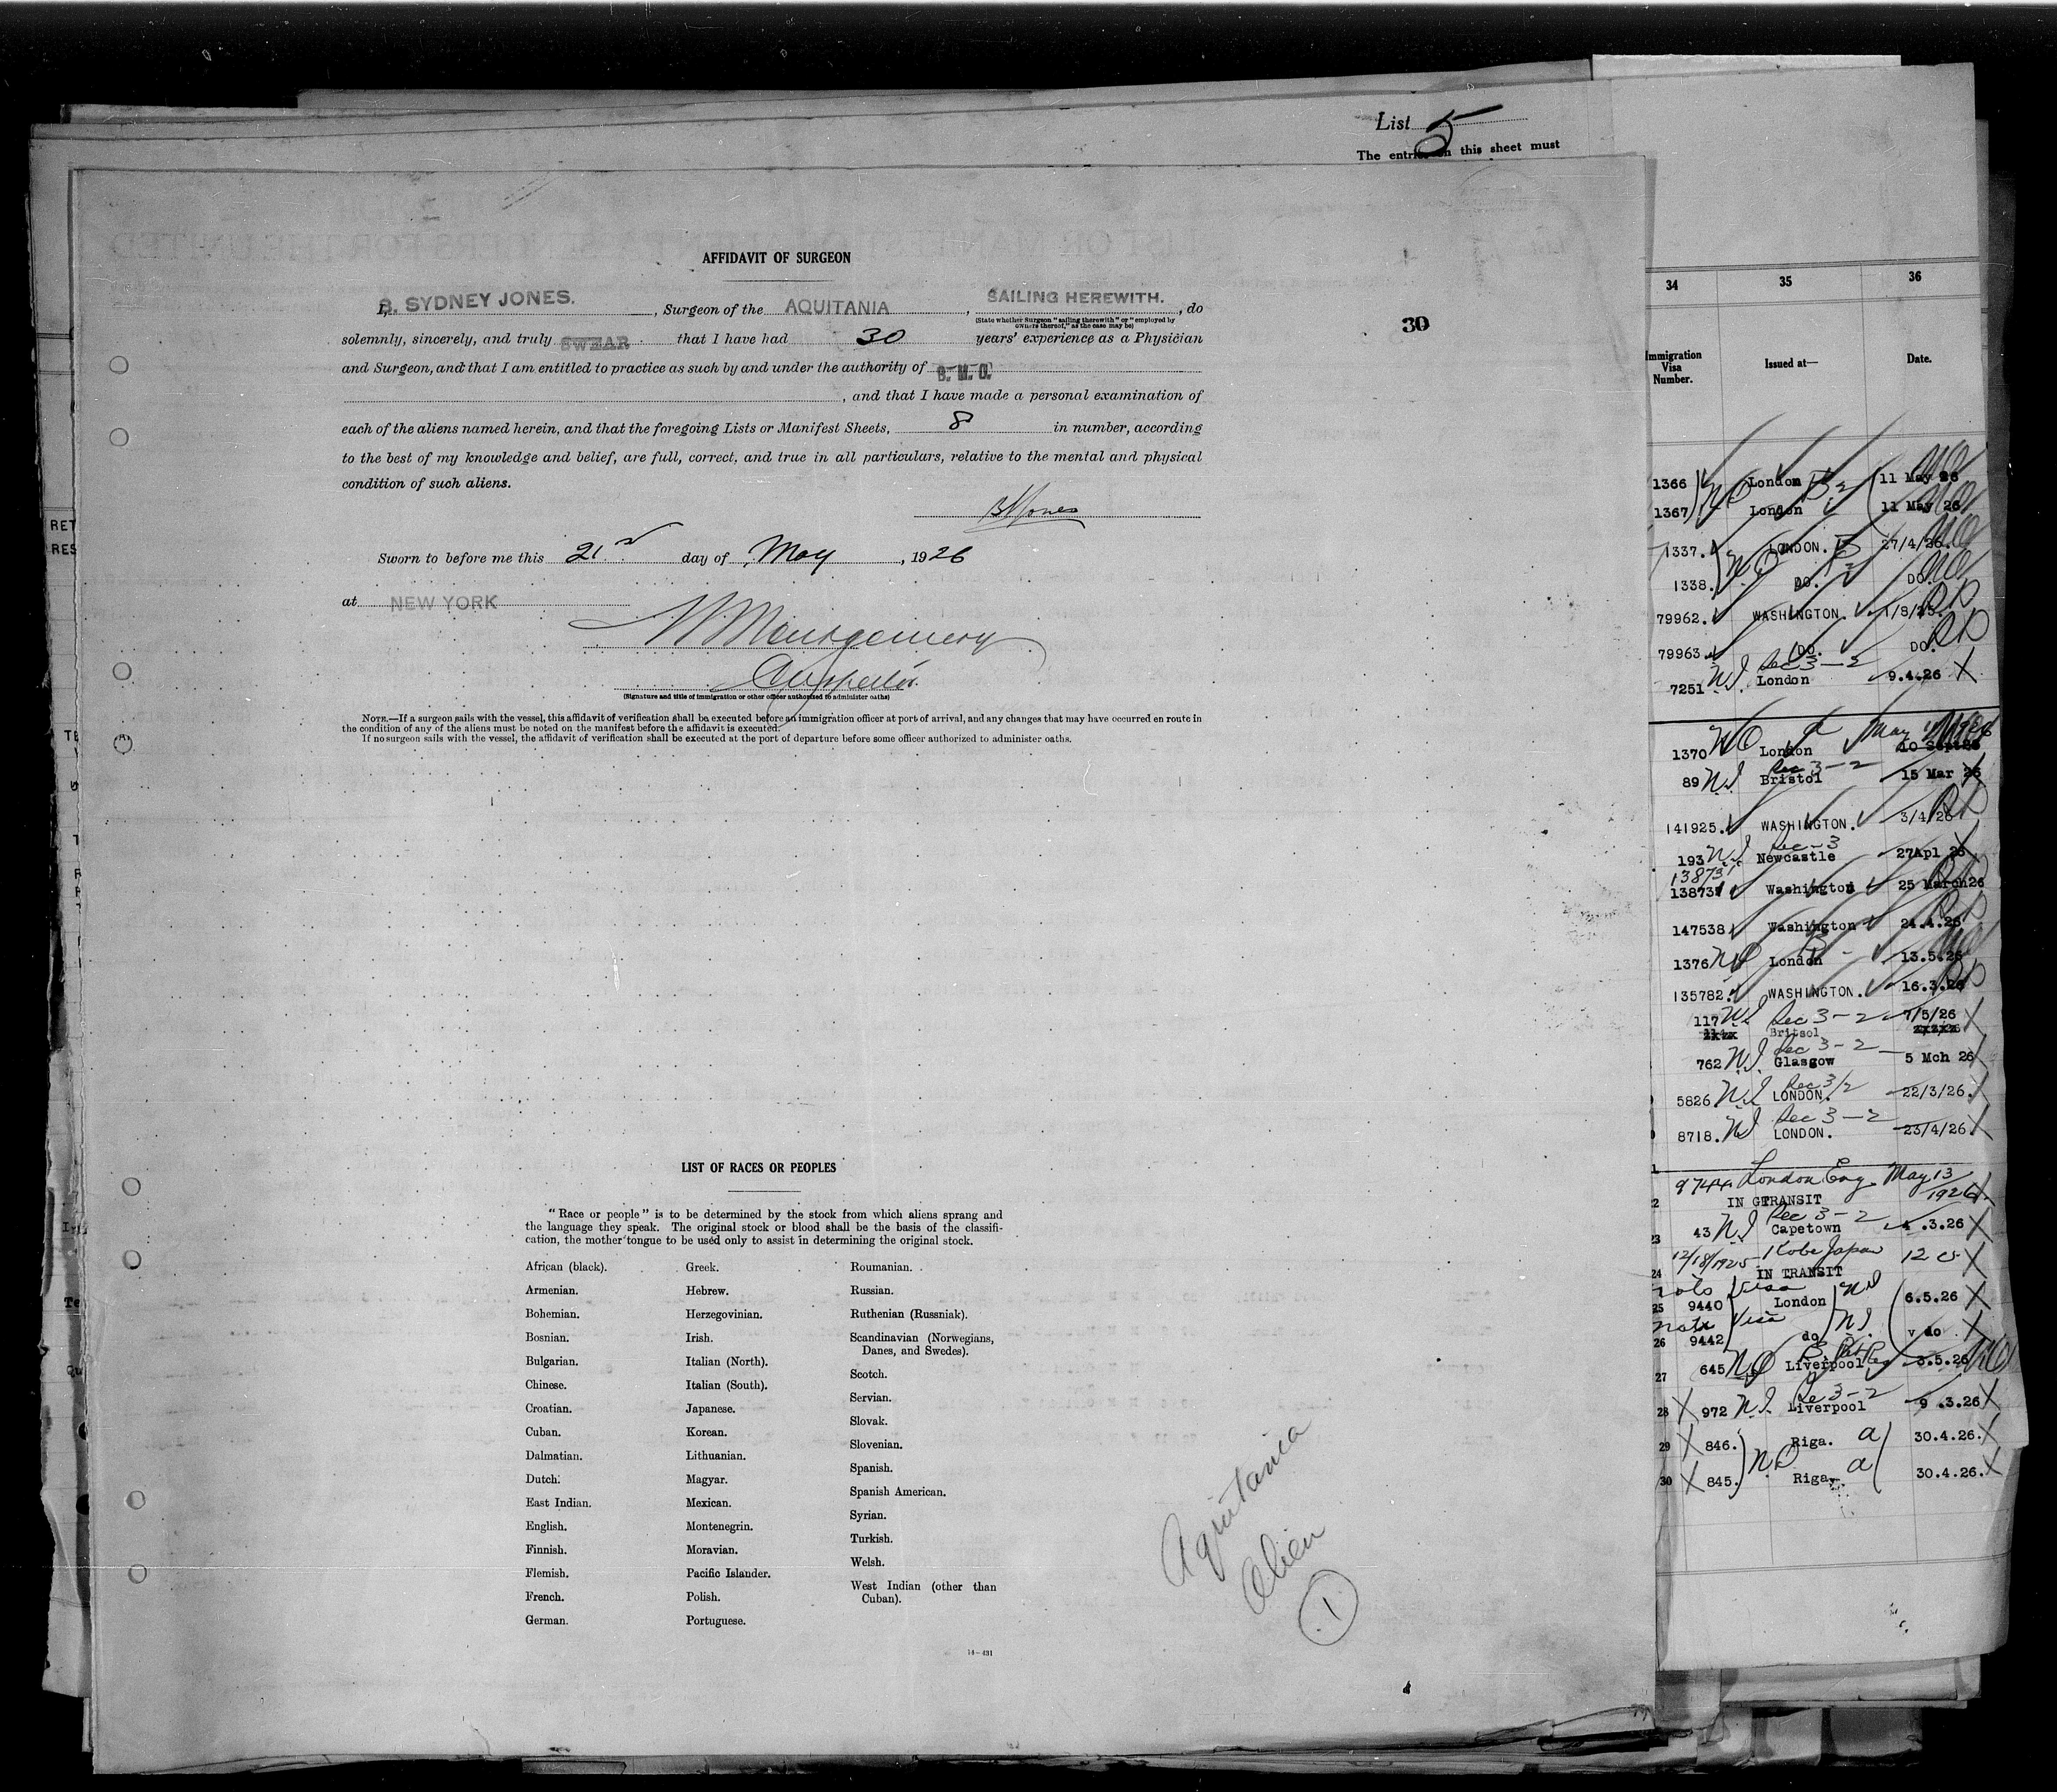 List 5
The entries on this sheet must
AFFIDAVIT OF SURGEON
I, B. SYDNEY JONES. , Surgeon of the AQUITANIA , SAILING HEREWITH. , do
(State whether Surgeon "sailing therewith" or "employed by
owners thereof," as the case may be)
30
solemnly, sincerely, and truly SWEAR that I have had 30 years' experience as a Physician
and Surgeon, and that I am entitled to practice as such by and under the authority of
, and that I have made a personal examination of
each of the aliens named herein, and that the foregoing Lists or Manifest Sheets, 8 in number, according
to the best of my knowledge and belief, are full, correct, and true in all particulars, relative to the mental and physical
condition of such aliens.
BSJones
Sworn to before me this 21st day of May , 1926
at NEW YORK
Montgomery
Inspector
(Signature and title of immigration or other officer authorized to administer oaths)
NOTE.—If a surgeon sails with the vessel, this affidavit of verification shall be executed before an immigration officer at port of arrival, and any changes that may have occurred en route in
the condition of any of the aliens must be noted on the manifest before the affidavit is executed.
If no surgeon sails with the vessel, the affidavit of verification shall be executed at the port of departure before some officer authorized to administer oaths.
LIST OF RACES OR PEOPLES
"Race or people" is to be determined by the stock from which aliens sprang and
the language they speak. The original stock or blood shall be the basis of the classifi-
cation, the mother tongue to be used only to assist in determining the original stock.
African (black).
Armenian.
Bohemian.
Bosnian.
Bulgarian.
Chinese.
Croatian.
Cuban.
Dalmatian.
Dutch.
East Indian.
English.
Finnish.
Flemish.
French.
German.
Greek.
Hebrew.
Herzegovinian.
Irish.
Italian (North).
Italian (South).
Japanese.
Korean.
Lithuanian.
Magyar.
Mexican.
Montenegrin.
Moravian.
Pacific Islander.
Polish.
Portuguese.
Roumanian.
Russian.
Ruthenian (Russniak).
Scandinavian (Norwegians,
Danes, and Swedes).
Scotch.
Servian.
Slovak.
Slovenian.
Spanish.
Spanish American.
Syrian.
Turkish.
Welsh.
West Indian (other than
Cuban).
14—431
Aquitania
Alien
1
34 35 36
Immigration
Visa
Number.
Issued at—
Date.
1366 NQ London 11 May 26
1367 London 11 May 26
1337. NQ LONDON. 27/4/26.
1338. DO. DO.
79962. WASHINGTON.
79963. DO. DO.
Sec 3-2
7251 N.I. London 9.4.26
1370 NQ London May
10 Sept 26
Sec 3-2
89 NI Bristol 15 Mar 26
141925. WASHINGTON. 3/4/26
Sec-3
193 N.I. Newcastle 27Apl 26
13873
13873 Washington 25 March26
147538 Washington 24.4.26
1376 NQ London 13.5.26
135782. WASHINGTON. 16.3.26
117 NI Sec 3-2 7/5/26
Britsol
Sec 3-2
762 N.I. Glasgow 5 Mch 26
Sec 3/2
5826. NI LONDON. 22/3/26.
Sec 3-2
8718. NI LONDON. 23/4/26.
9744 London Eng. May 13
1926
22 IN TRANSIT
Sec 3-2
23 43 NI Capetown .3.26
12/18/1925 Kobe Japan
24 IN TRANSIT
Visa
25 9440 London NI 6.5.26
Visa
26 9442 do NI. do
27 645 NQ Liverpool 3.5.26
Sec 3-2
28 972 N.I. Liverpool 9 .3.26
29 846. Riga. 30.4.26.
N.Q
30 845. Riga. 30.4.26.
RET
RES